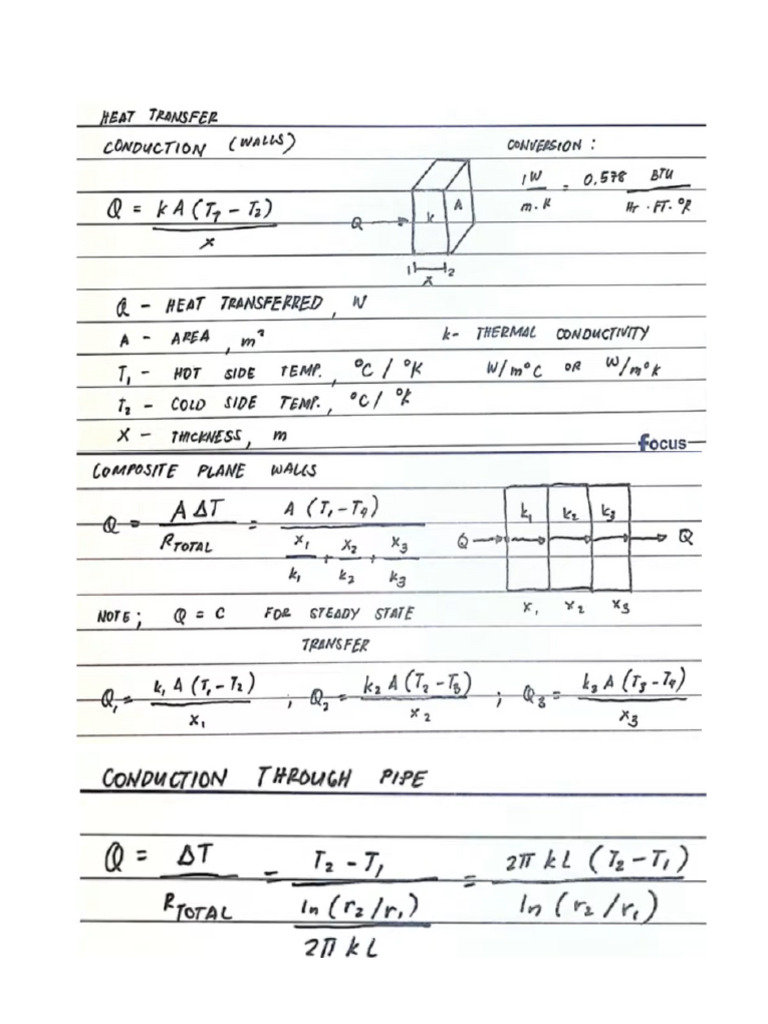 HEAT TRANSFER
CONDUCTION (WALLS)
CONVERSION :
1 W / m.K = 0.578 BTU / Hr . FT . °R
Q = k A (T1 - T2) / x
Q k A
1 2
x
Q - HEAT TRANSFERRED, W
A - AREA, m²
k - THERMAL CONDUCTIVITY
T1 - HOT SIDE TEMP., °C / °K
W/m°C OR W/m°k
T2 - COLD SIDE TEMP., °C / °k
X - THICKNESS, m
focus
COMPOSITE PLANE WALLS
Q = A ΔT / RTOTAL = A (T1 - T4) / x1/k1 + x2/k2 + x3/k3
k1 k2 k3
Q Q
x1 x2 x3
NOTE; Q = C FOR STEADY STATE
TRANSFER
Q1 = k1 A (T1 - T2) / x1 ; Q2 = k2 A (T2 - T3) / x2 ; Q3 = k3 A (T3 - T4) / x3
CONDUCTION THROUGH PIPE
Q = ΔT / RTOTAL = T2 - T1 / ln (r2/r1) / 2π k L = 2π k L (T2 - T1) / ln (r2/r1)